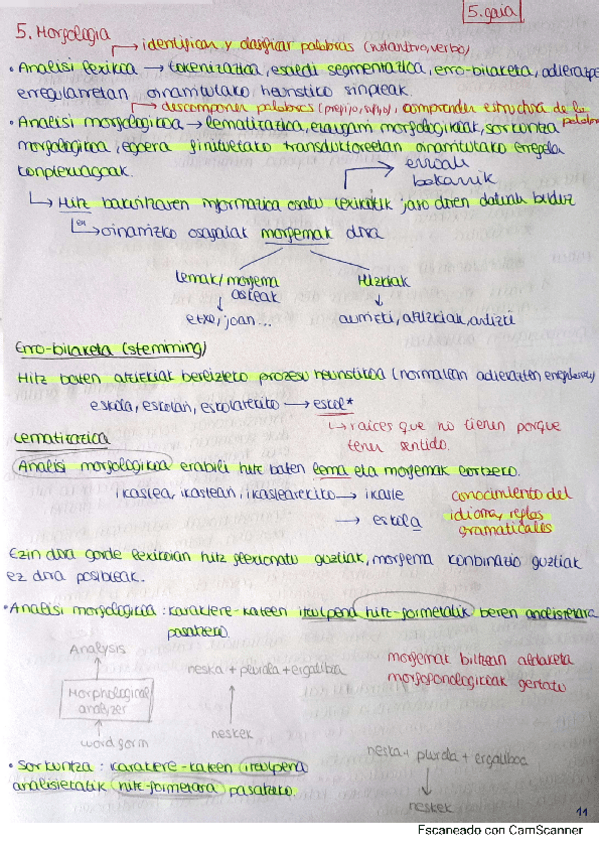 5. gaia
5. Morfologia
→ identifican y clasificar palabras (sustantivo, verbo)
• Analisi lexikoa → tokenizazioa, esaldi segmentazioa, erro-bilaketa, adierazpen
erregularretan oinarritutako heuristiko sinpleak.
→ descomponer palabras (prefijo, sufijo), comprender estructura de la palabra
• Analisi morfologikoa → lematizazioa, ezaugarri morfologikoak, sorkuntza
morfologikoa, egoera finituetako transduktoreetan oinarritutako erregela
konplexuagoak.
erroak
bakarrik
↳ Hitz bakoitzaren informazioa osatu lexikotik jaso diren datuak bilduz
↳ oinarrizko osagaiak morfemak dira
Lemak/morfema askeak
Hizkiak
↓ ↓
etxe, joan... aurrizki, atzizkiak, artizki
Erro-bilaketa (stemming)
Hitz baten atzizkiak bereizteko prozesu heuristikoa (normalean adierazpen erregularrak)
eskola, eskolan, eskolarekiko → eskol*
↳ raíces que no tienen porque
tener sentido.
Lematizazioa
Analisi morfologikoa erabili hitz baten lema eta morfemak lortzeko.
ikaslea, ikaslean, ikaslearekiko → ikasle
→ eskola
conocimiento del
idioma, reglas
gramaticales
Ezin dira gorde lexikoian hitz flexionatu guztiak, morfema konbinazio guztiak
ez dira posibleak.
• Analisi morfologikoa: karaktere-kateen itzulpena hitz-formetatik beren analisietara
pasatzeko.
Analysis
↑
Morphological
analyzer
↑
word form
neska + plurala + ergatiboa
↑
neskek
morfemak biltzean aldaketa
morfofonologikoak gertatu
• Sorkuntza: karaktere-kateen itzulpena
analisietatik hitz-formetara pasatzeko.
neska + plurala + ergatiboa
↓
neskek
11
Escaneado con CamScanner